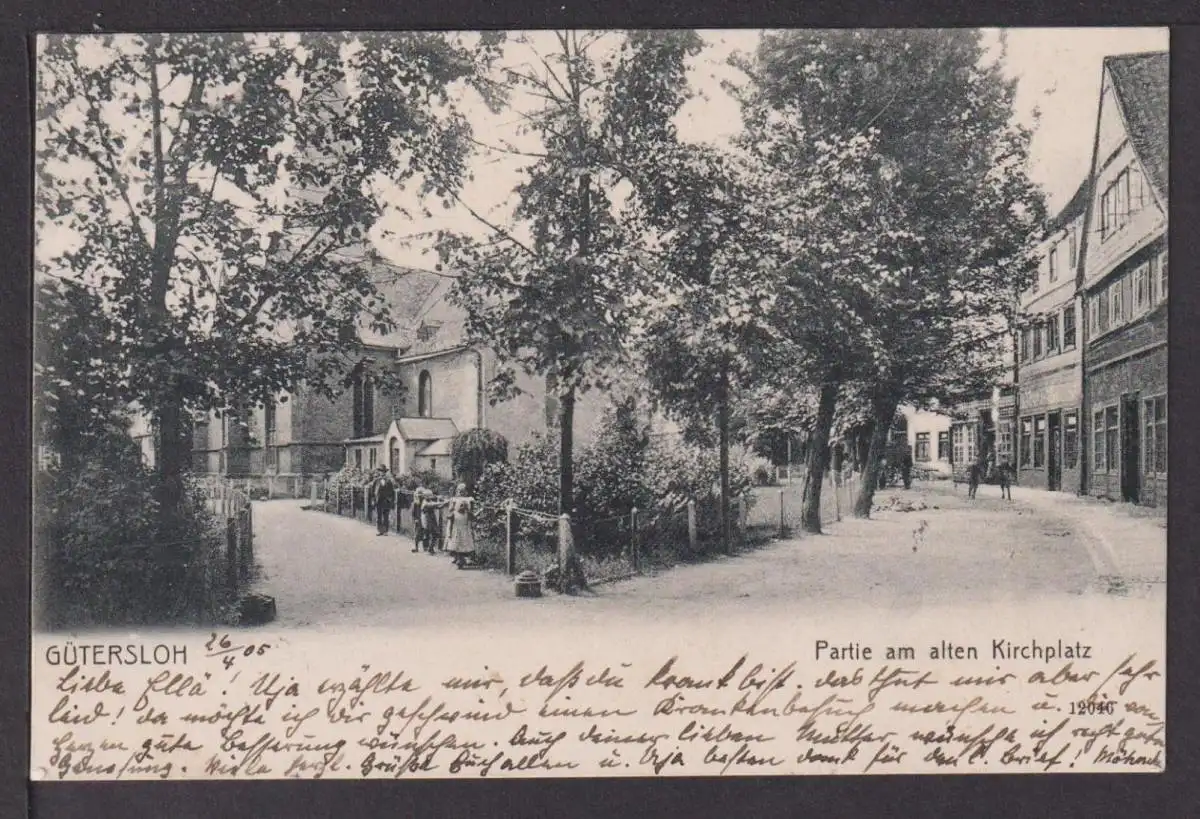 GÜTERSLOH 26/4 05
Partie am alten Kirchplatz
Liebe Ellä! Uja erzählte mir, daß du krank bist. das thut mir aber sehr
leid! da möchte ich dir geschwind einen Krankenbesuch machen u. von
12040
Herzen gute Besserung wünschen. Auch deiner lieben Mutter, wünsche ich recht gute
Genesung. Viele herzl. Grüße Euch allen u. Uja besten dank für den l. Brief!